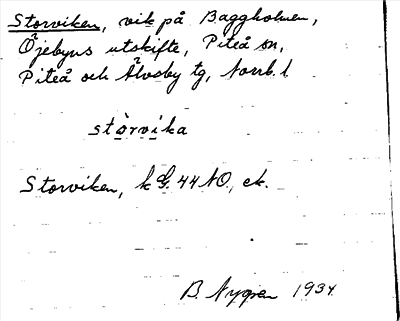 Storviken, vik på Baggholmen,
Öjebyns utskifte, Piteå sn,
Piteå och Älvsby tg, Norrb. l
stòrvika
Storviken, k G. 44 NO, ek.
B. Nygren 1934